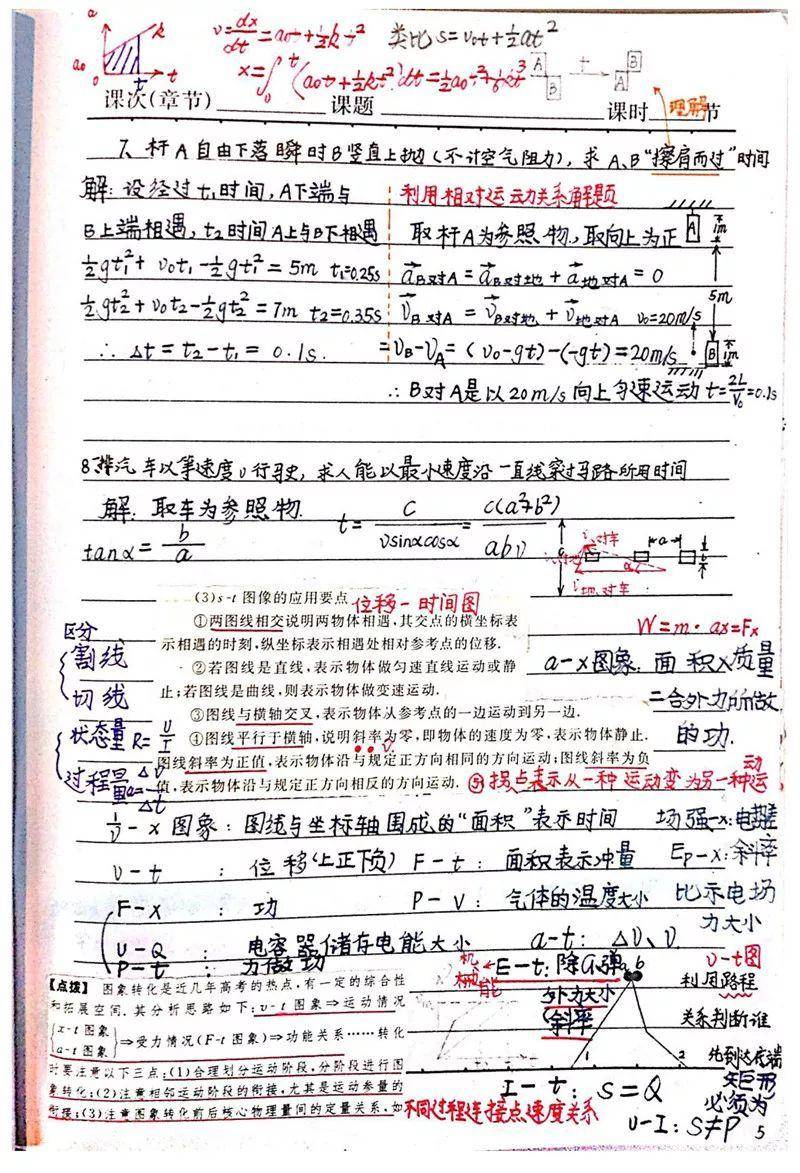 v=dx/dt=a₀t+½kt² 类比 s=v₀t+½at²
x=∫₀ᵗ(a₀t+½kt²)dt=½a₀t²+⅙kt³
a k a₀ 0 t t
A B t A B
课次(章节) 课题 课时 节
理解
7、杆A自由下落瞬时B竖直上抛(不计空气阻力),求A、B“擦肩而过”时间
解:设经过t₁时间,A下端与
B上端相遇,t₂时间A上与B下相遇
½gt₁²+v₀t₁-½gt₁²=5m t₁=0.25s
½gt₂²+v₀t₂-½gt₂²=7m t₂=0.35s
∴Δt=t₂-t₁=0.1s.
利用相对运动关系解题
取杆A为参照物,取向上为正
a⃗B对A=a⃗B对地+a⃗地对A=0
v⃗B对A=v⃗B对地+v⃗地对A v₀=20m/s
=vB-vA=(v₀-gt)-(-gt)=20m/s
∴B对A是以20m/s向上匀速运动 t=2L/v₀=0.1s
A 1m
5m
B 1m
8、排汽车以等速度v行驶,求人能以最小速度沿一直线穿过马路所用时间
解:取车为参照物.
t=c/(vsinαcosα)=c(a²+b²)/(abv)
tanα=b/a
a b c α
v地对车
(3)s-t图像的应用要点 位移-时间图
①两图线相交说明两物体相遇,其交点的横坐标表
示相遇的时刻,纵坐标表示相遇处相对参考点的位移.
②若图线是直线,表示物体做匀速直线运动或静
止;若图线是曲线,则表示物体做变速运动.
③图线与横轴交叉,表示物体从参考点的一边运动到另一边.
④图线平行于横轴,说明斜率为零,即物体的速度为零,表示物体静止.
图线斜率为正值,表示物体沿与规定正方向相同的方向运动;图线斜率为负
值,表示物体沿与规定正方向相反的方向运动.
⑤拐点表示从一种运动变为另一种运动
区分
割线
切线
状态量 R=U/I
过程量 a=Δv/Δt
W=m·ax=Fx
a-x图象:面积x质量
=合外力所做
的功.
1/v-x图象:图线与坐标轴围成的“面积”表示时间
v-t:位移(上正下负)
F-x:功
U-Q:电容器储存电能大小
P-t:力做功
F-t:面积表示冲量
P-V:气体的温度大小
a-t:Δv、v
场强-x:电势差
Ep-x:斜率
比示电场
力大小
机械能
E-t:除G、弹
外力大小
(斜率)
a b
1 2
v-t图
利用路程
关系判断谁
先到达底端
【点拨】 图象转化是近几年高考的热点,有一定的综合性
和拓展空间.其分析思路如下:v-t图象⇒运动情况
{x-t图象
a-t图象}⇒受力情况(F-t图象)⇒功能关系……转化
时要注意以下三点:(1)合理划分运动阶段,分阶段进行图
象转化;(2)注意相邻运动阶段的衔接,尤其是运动参量的
衔接;(3)注意图象转化前后核心物理量间的定量关系,如
不同过程连接点速度关系
I-t:S=Q
矩形
必须为
U-I:S≠P
5